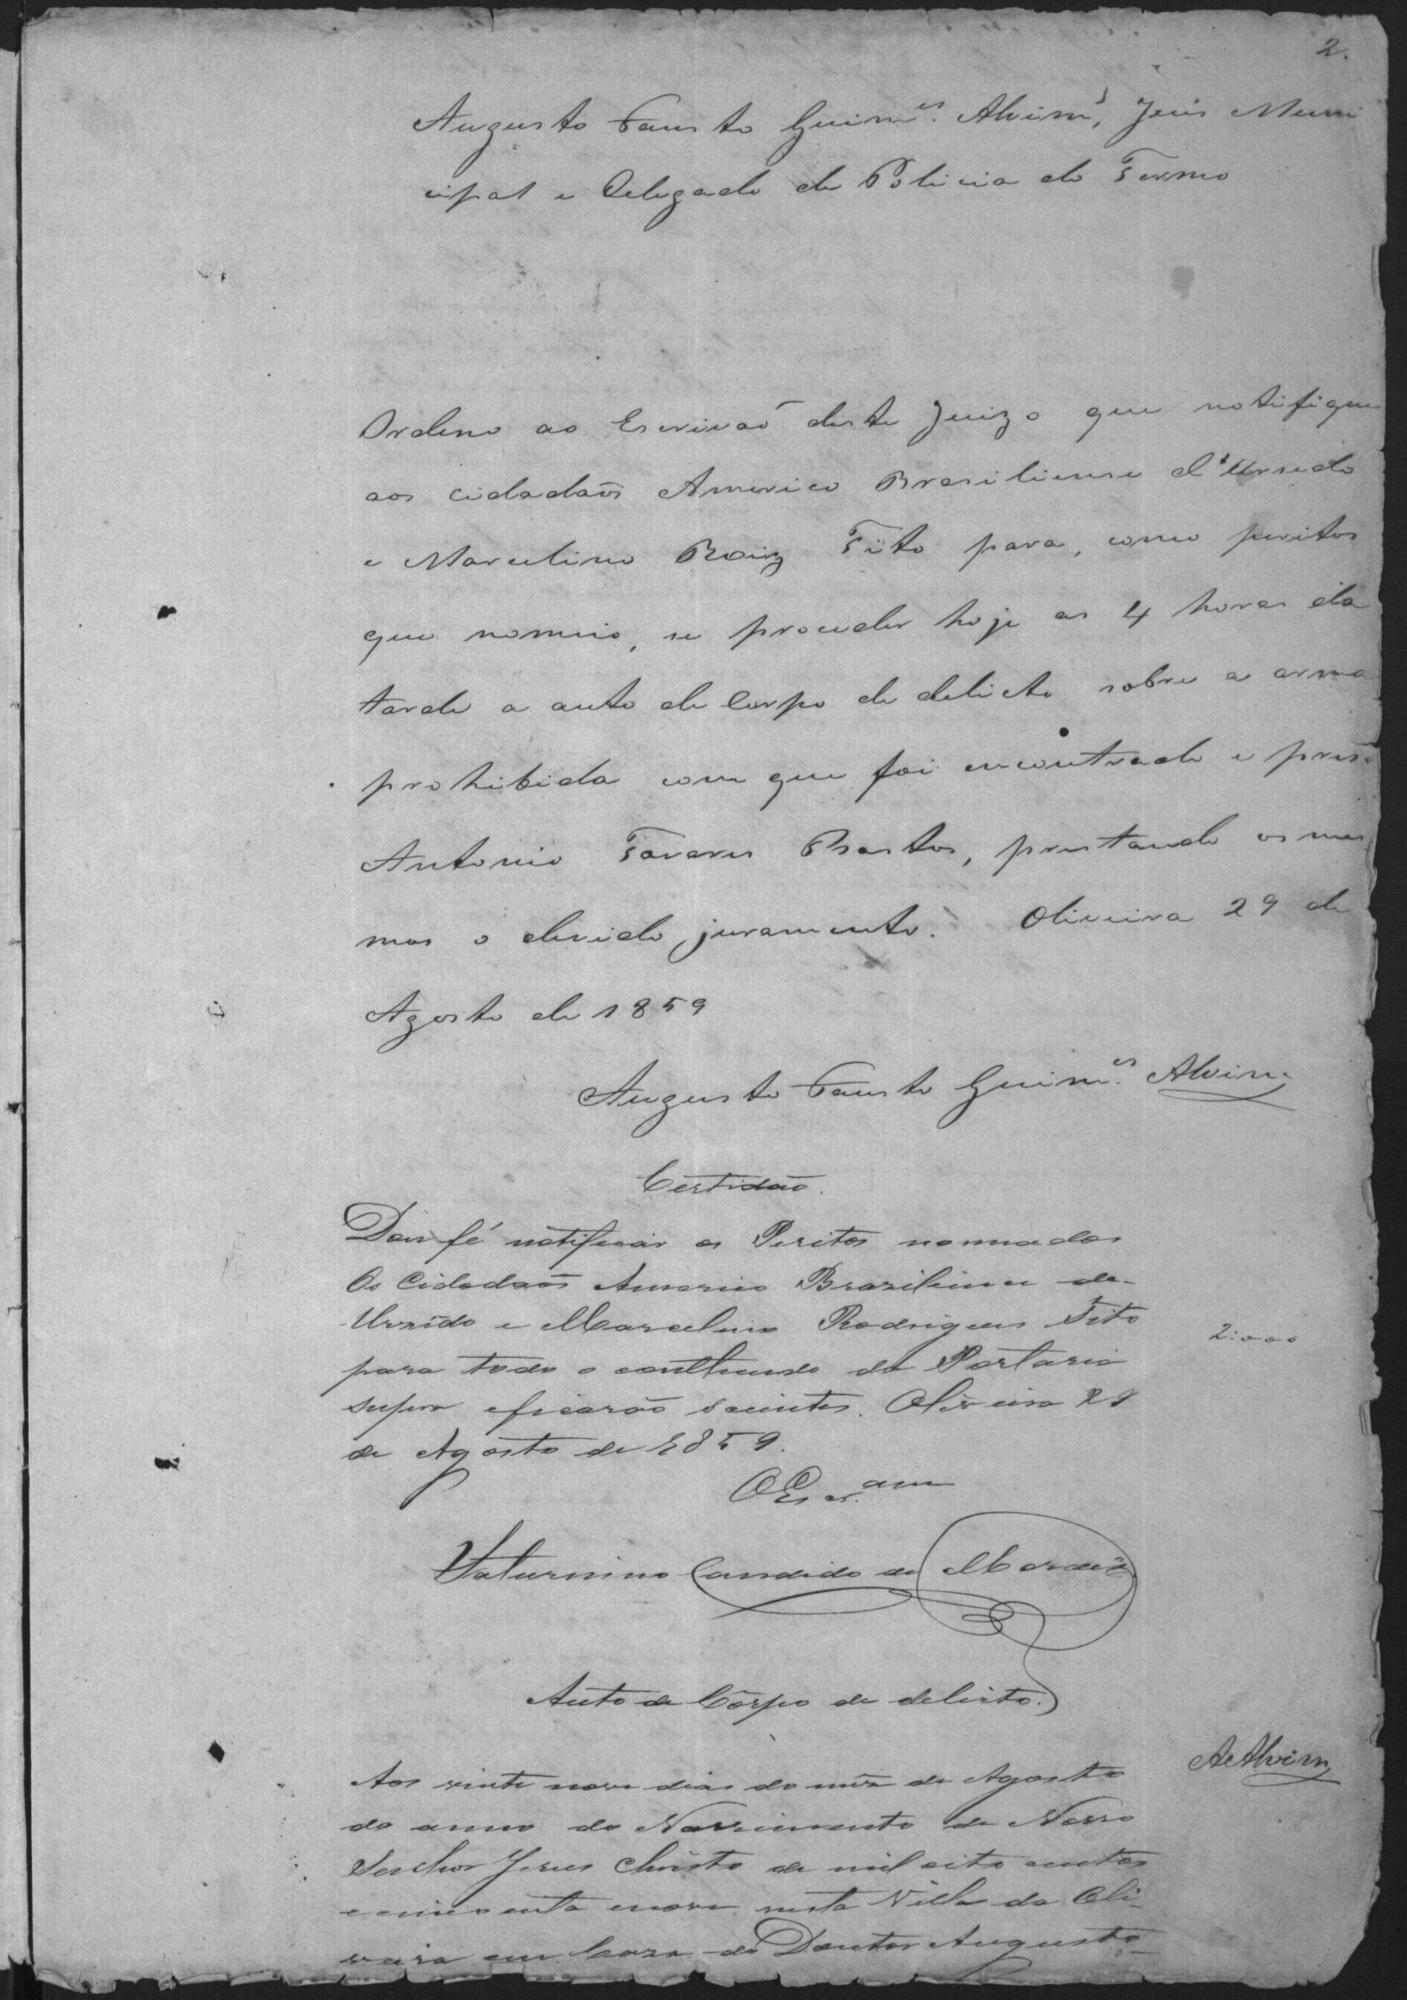 2.
Augusto Fausto Guim.es Alvim, Juis Muni
cipal e Delegado de Policia do Termo
Ordeno ao Escrivaõ deste Juizo que notifique
aos cidadaõs Americo Brasiliense d'Urzedo
e Marcelino Roiz Tito para, como peritos
que nomeio, se proceder hoje as 4 horas da
tarde a auto de Corpo de delicto sobre a arma
prohibida com que foi encontrado e preso
Antonio Tavares Bastos, prestando os mes
mos o devido juramento. Oliveira 29 de
Agosto de 1859
Augusto Fausto Guim.es Alvim
Certidão.
Dou fé notificar os Peritos nomeados
Os Cidadaõs Americo Braziliense de
Urzedo e Marcelino Rodrigues Tito
para todo o contheudo da Portaria
supra eficarão scientes. Oliveira 29
de Agosto de 1859.
2:000
O Escr.am
Saturnino Candido de
Auto de Corpo de delicto.
AeAlvim
Aos vinte nove dias do mez de Agosto
do anno do Nascimento de Nosso
Senhor Jesus Christo de mil oito centos
e cincoenta enove nesta Villa da Oli-
veira em Caza do Doutor Augusto